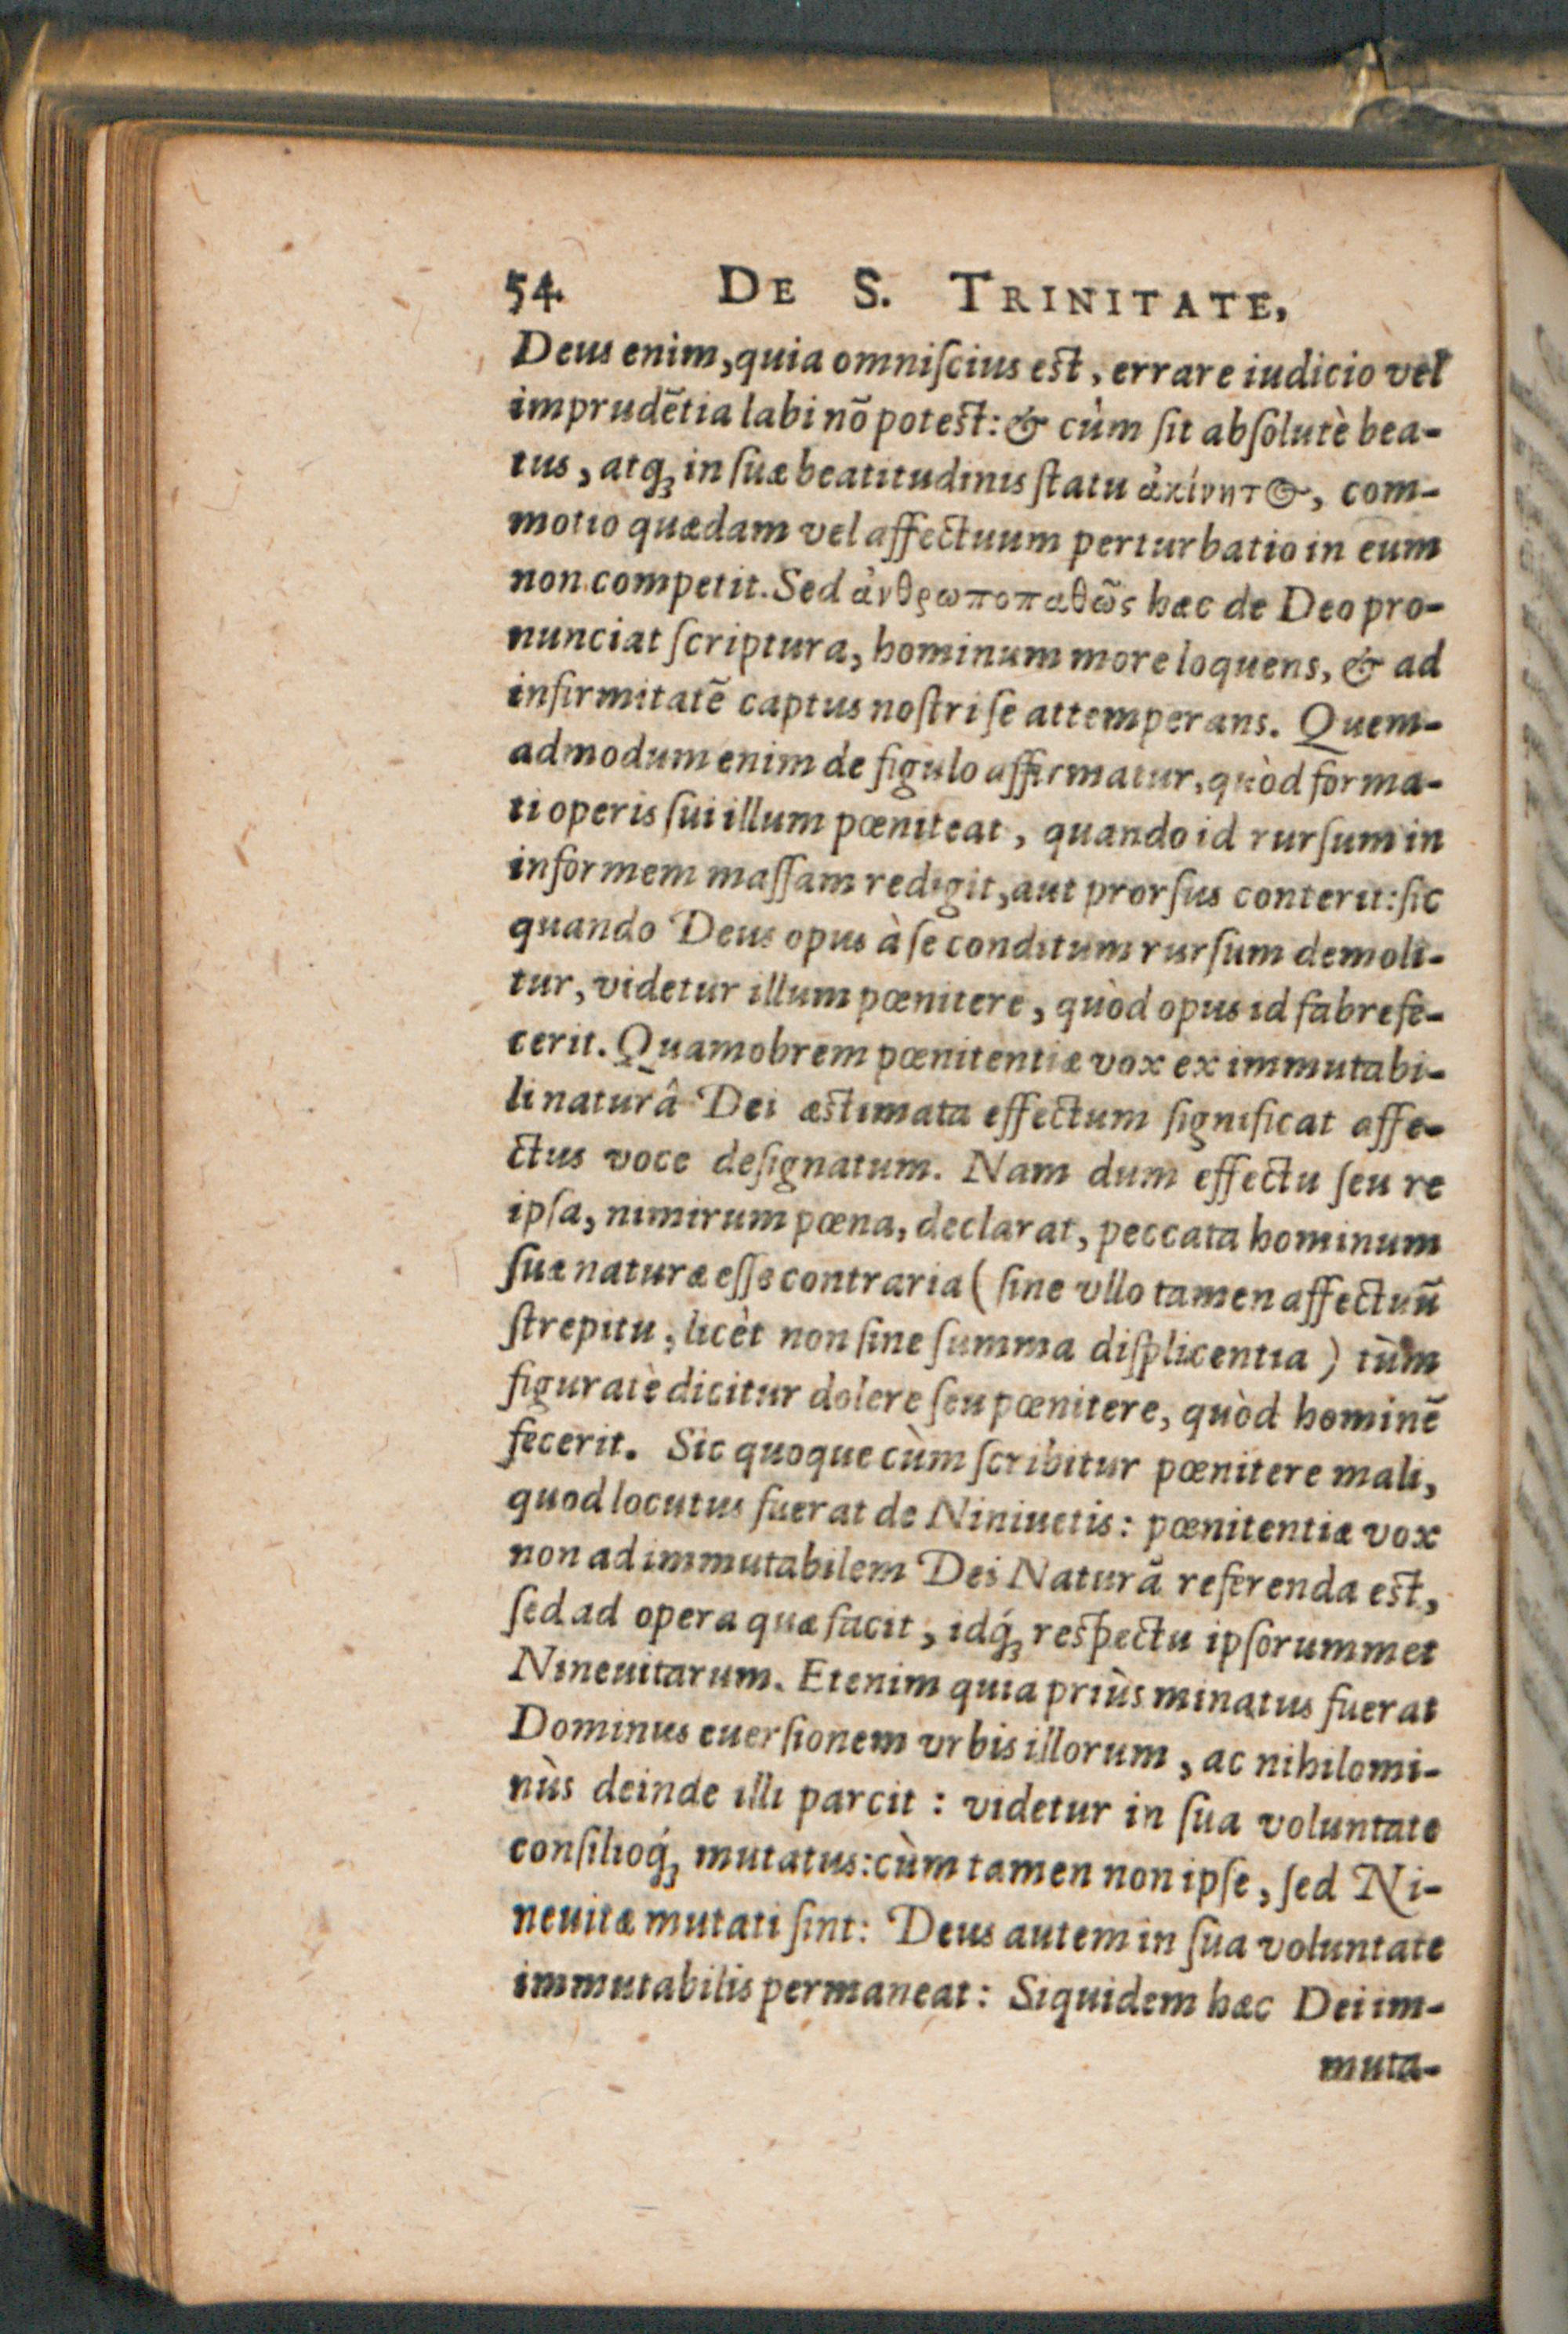 54 DE S. TRINITATE,
Deus enim, quia omniſcius est, errare iudicio vel
imprudẽtia labi nõ potest: & cùm ſit abſolutè bea-
tus, atq́ꝫ in ſuæ beatitudinis ſtatu ἀκίνητ<unclear>Θ</unclear>, com-
motio quædam vel affectuum perturbatio in eum
non competit. Sed ἀνθρωποπαθῶς hæc de Deo pro-
nunciat ſcriptura, hominum more loquens, & ad
infirmitatẽ captus noſtri ſe attemperans. Quem-
admodum enim de figulo affirmatur, quòd forma-
ti operis ſui illum pœniteat, quando id rurſum in
informem maſſam redigit, aut prorſus conterit: ſic
quando Deus opus à ſe conditum rurſum demoli-
tur, videtur illum pœnitere, quòd opus id fabrefe-
cerit. Quamobrem pœnitentiæ vox ex immutabi-
li naturâ Dei æstimata effectum ſignificat affe-
ctus voce deſignatum. Nam dum effectu ſeu re
ipſa, nimirum pœna, declarat, peccata hominum
ſuæ naturæ eſſe contraria ( ſine vllo tamen affectuũ
ſtrepitu, licèt non ſine ſumma diſplicentia ) tùm
figuratè dicitur dolere ſeu pœnitere, quòd hominẽ
fecerit. Sic quoque cùm ſcribitur pœnitere mali,
quod locutus fuerat de Niniuetis: pœnitentiæ vox
non ad immutabilem Dei Naturã referenda est,
ſed ad opera quæ facit, idq́ꝫ respectu ipſorummet
Nineuitarum. Etenim quia priùs minatus fuerat
Dominus euerſionem vrbis illorum, ac nihilomi-
nùs deinde illi parcit: videtur in ſua voluntate
conſilioq́ꝫ mutatus: cùm tamen non ipſe, ſed Ni-
neuitæ mutati ſint: Deus autem in ſua voluntate
immutabilis permaneat: Siquidem hæc Dei im-
muta-